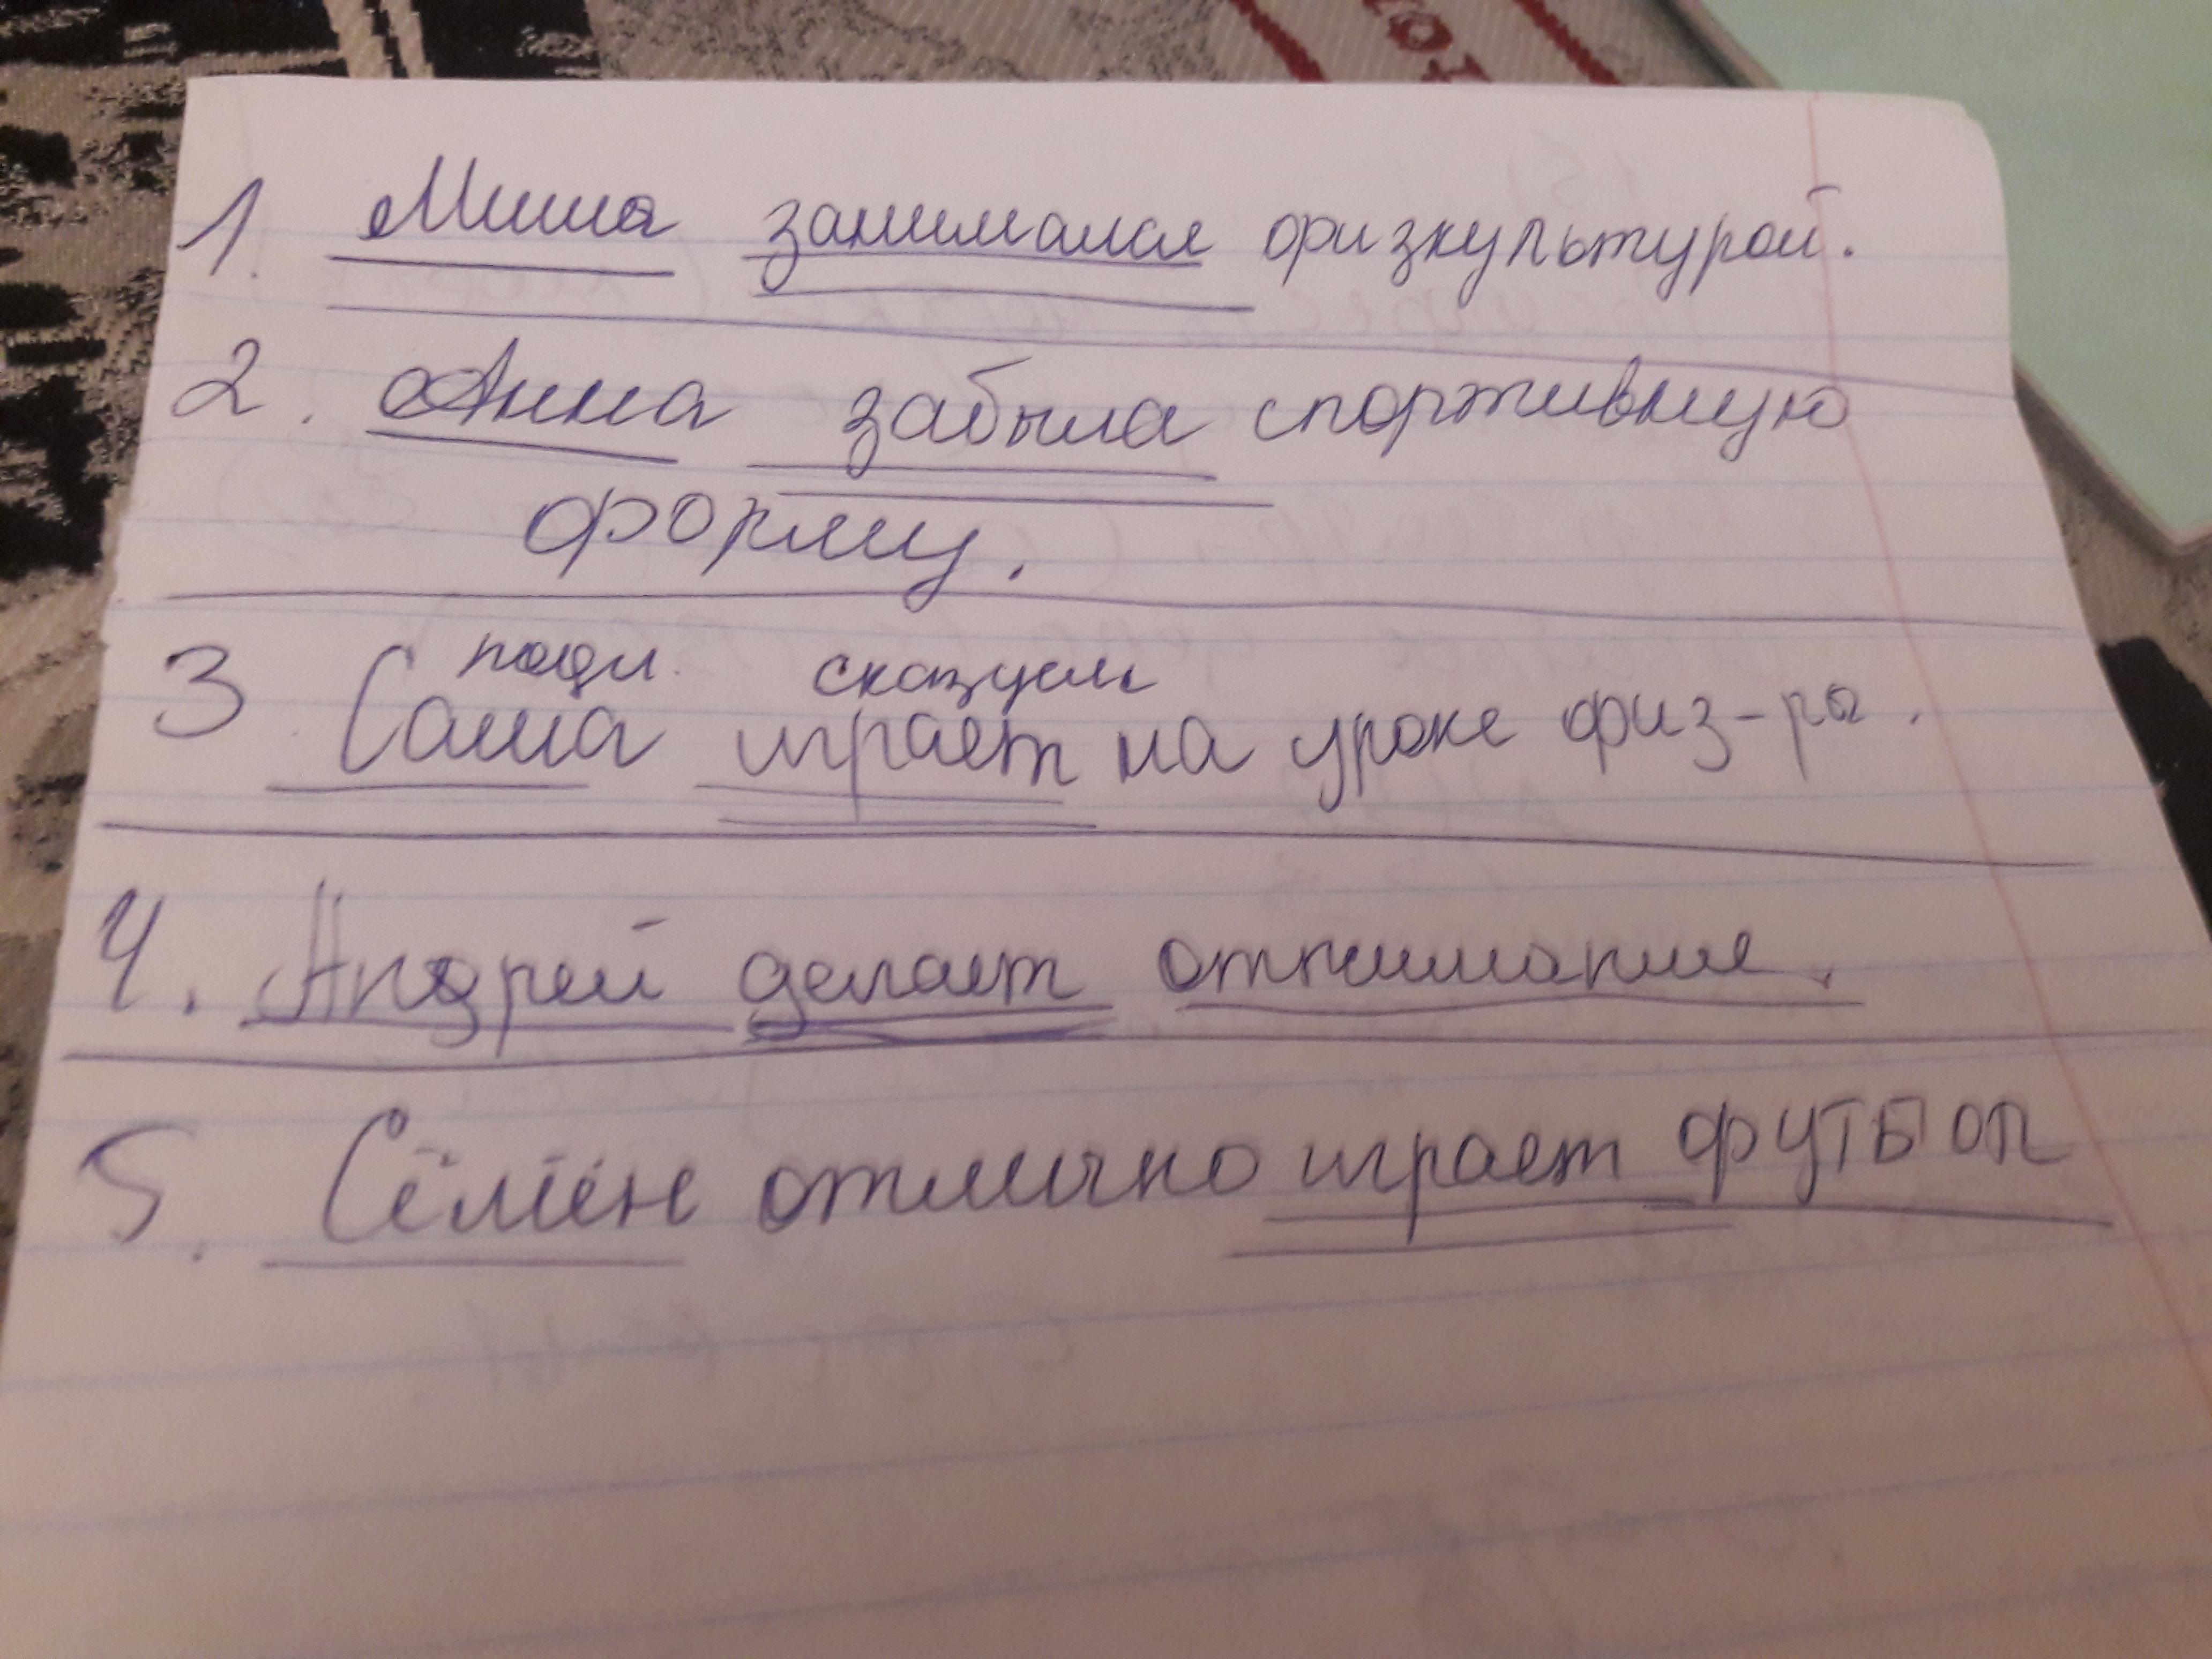 1. Миша занимался физкультурой.
2. Анна забыла спортивную
форму.
подл. сказуем
3. Саша играет на уроке физ-ры.
4. Андрей делает отжимания.
5. Семён отлично играет футбол